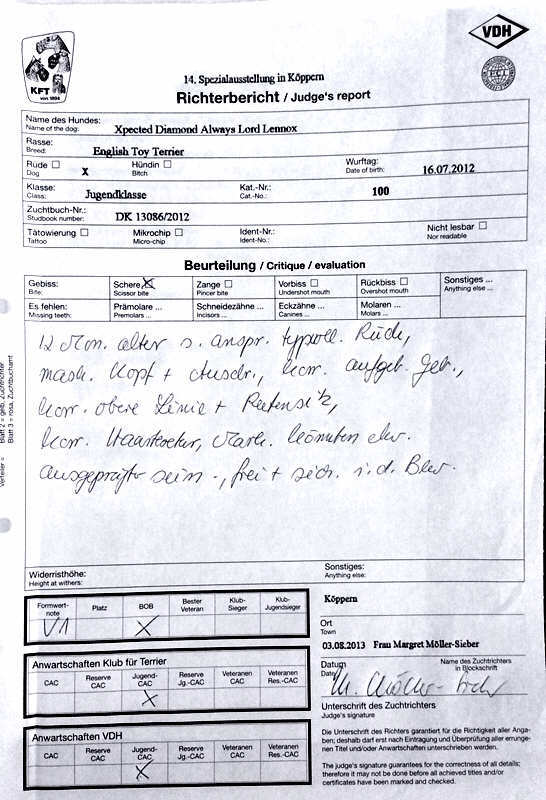 KFT
von 1894
VDH
F.C.I.
14. Spezialausstellung in Köppern
Richterbericht / Judge's report
Name des Hundes:
Name of the dog:
Xpected Diamond Always Lord Lennox
Rasse:
Breed:
English Toy Terrier
Rüde ☐ Hündin ☐ Wurftag:
Dog X Bitch Date of birth: 16.07.2012
Klasse: Kat.-Nr.:
Class: Jugendklasse Cat.-No.: 100
Zuchtbuch-Nr.:
Studbook number: DK 13086/2012
Tätowierung ☐ Mikrochip ☐ Ident-Nr.: Nicht lesbar ☐
Tattoo Micro-chip Ident-No.: Nor readable
Beurteilung / Critique / evaluation
Gebiss: Schere X Zange ☐ Vorbiss ☐ Rückbiss ☐ Sonstiges ...
Bite: Scissor bite Pincer bite Undershot mouth Overshot mouth Anything else ...
Es fehlen: Prämolare ... Schneidezähne ... Eckzähne ... Molaren ...
Missing teeth: Premolars ... Incisors ... Canines ... Molars ...
12 Mon. alter s. anspr. typvoll. Rüde,
mask. Kopf + Ausdr., korr. aufgeb. Geb.,
korr. obere Linie + Rutensitz,
korr. Haartextur, Mark. könnten
ausgeprägter sein, frei + sich. i. d. Bew.
Verteiler =
Blatt 2 = gelb, Zuchtrichter
Blatt 3 = rosa, Zuchtbuchamt
Widerristhöhe:
Height at withers:
Sonstiges:
Anything else:
Formwert-note Platz BOB Bester Veteran Klub-Sieger Klub-Jugendsieger
V1 X
Anwartschaften Klub für Terrier
CAC Reserve CAC Jugend-CAC Reserve Jg.-CAC Veteranen CAC Veteranen Res.-CAC
X
Anwartschaften VDH
CAC Reserve CAC Jugend-CAC Reserve Jg.-CAC Veteranen CAC Veteranen Res.-CAC
X
Köppern
Ort
Town
03.08.2013 Frau Margret Möller-Sieber
Datum Name des Zuchtrichters
Date in Blockschrift
M. Möller-Sieber
Unterschrift des Zuchtrichters
Judge's signature
Die Unterschrift des Richters garantiert für die Richtigkeit aller Anga-
ben; deshalb darf erst nach Eintragung und Überprüfung aller errunge-
nen Titel und/oder Anwartschaften unterschrieben werden.
The judge's signature guarantees for the correctness of all details;
therefore it may not be done before all achieved titles and/or
certificates have been marked and checked.